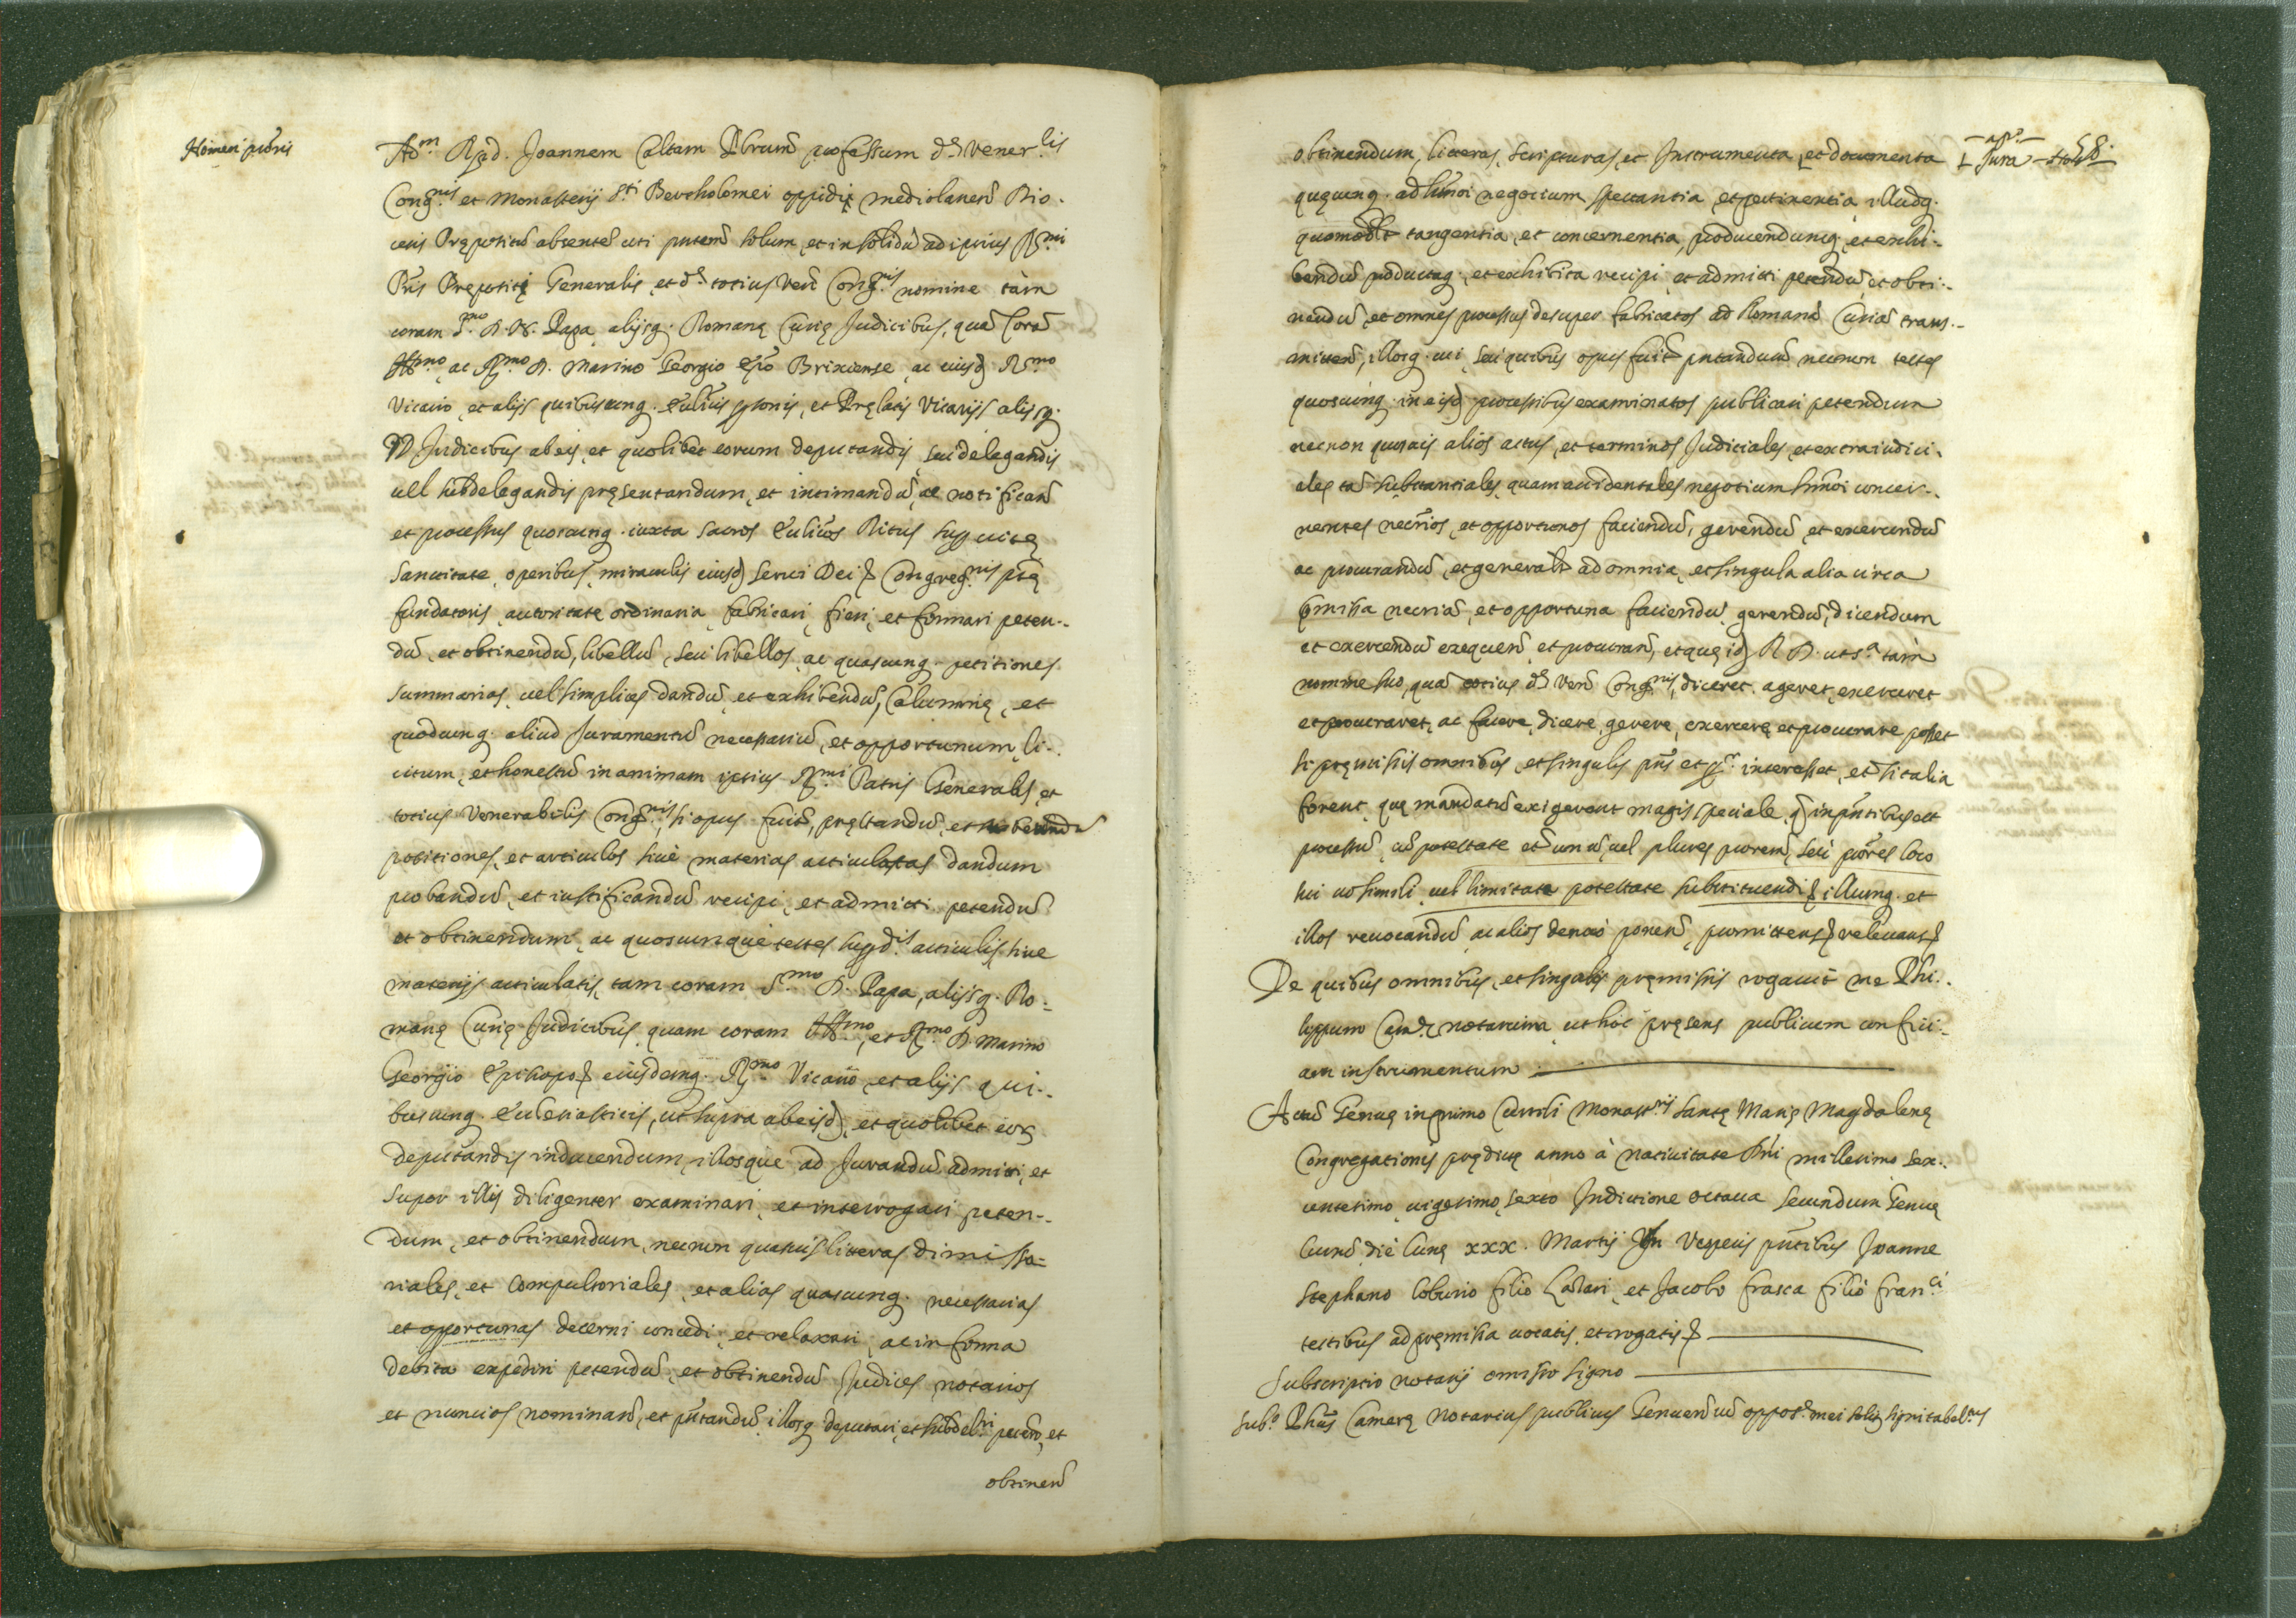 Nomen pūris
Adm Rd. Joannem Caltam Pbrum̄ professum d. vener.lis
Cong.nis et Monasterij S.ti Bertholomei oppidi mediolanen̄ Dio-
cesis Prępositū absentē uti putem̄ solum, et insolidū ad ipsius R.mi
Pris Prepositi Generalis, et d. totius Ven̄ Cong.nis nomine tàm
coram S.mo D. N. Papa alijsq. Romanę Curię Judicibus, quā Corā
Ill.mo, ac R.mo D. Marino Georgio Ep̄o Brixiense, ac eiusd R.mo
Vicario, et alijs quibuscunq. Ecclius psonis, et Prelatis Vicarijs alijsq.
Judicibus ab eis, et quolibet eorum deputandis, seu delegandis
uel subdelegandis pręsentandum, et intimandū, ac notifican̄
et processus quoscunq. iuxta sacros Eccl̄icos Ritus sup uita
sanctitate, operibus, miraculis eiusd serui Dei Congreg.nis ptę
fundatoris, autoritate ordinaria fabricari, fieri, et formari peten-
dū, et obtinendū, libellū, seu libellos, ac quascunq. petitiones
summarias, uel simplices dandū, et exhibendū, Calumnię, et
quodcunq. aliud Juramentū necessariū, et opportunum, li-
citum, et honestū in animam ipsius R.mi Patris Generalis, et
totius Venerabilis Cong.nis, si opus fuit, pręstandū, et subeundū
positiones, et articulos siuè materias articulatas dandum
probandū, et iustificandū recipi, et admitti petendū
et obtinendum, ac quoscunque testes supd.is articulis siue
materijs articulatis, tam coram S.mo D. Papa, alijsq. Ro-
manę Curię Judicibus, quam coram Ill.mo, et R.mo D. Marino
Georgio Episcopo eiusdemq. R.mo Vicario, et alijs qui-
buscunq. Ecclesiasticis, ut supra ab eisd, et quolibet eor
deputandis inducendum, illosque ad Jurandū admitti, et
super illis diligenter examinari, et interrogari peten-
dum, et obtinendum, necnon quasuis litteras dimisso-
riales, et Compulsoriales, et alias quascunq. necessarias
et opportunas decerni concedi, et relaxari, ac in forma
debita expediri petendū, et obtinendū Judices notarios
et nuncios nominan̄, et pūtandū, illosq deputari, et subdel.ri peten̄, et
obtinen̄
obtinendum, litteras, scripturas, et Instrumenta, et documenta
Jura
quęcunq. ad hmōi negotium spectantia, et pertinentia, illudq.
quomodolt tangentia, et concernentia, producendumq, et exhi-
bendū productaq. et exhibita recipi, et admitti petendū, et obti-
nendū, et omnes processus desuper fabricatos ad Romanā Curiā trans-
mitten̄, illosq. cui, seu quibus opus fuit pntandum necnon testes
quoscunq. in eisd processibus examinatos publicari petendum
necnon quosuis alios actus, et terminos Judiciales, et extraiudici-
ales, tā substantiales, quam accidentales negotium hmōi concer-
nentes necrios, et opportunos faciendū, gerendū, et exercendū
ac procurandū, et generalt ad omnia, et singula alia circa
pmissa necria, et opportuna faciendū, gerendū, dicendum
et exercendū, exequen̄, et procuran̄, et quę id R. D. ut s.a tàm
nomine suo, quā totius d. Ven̄ Cong.nis, diceret, ageret, exerceret
et procuraret, ac facere, dicere, gerere, exercere, et procurare posset
si pręmissis omnibus, et singulis pns et pr. interesset, et si talia
forent, quę mandatū exigerent magis speciale, q in pntibus est
processū, cū potestate et unū, uel plures prorem̄, seu prōres loco
sui cū simili, uel limitata potestate substituendi illumq. et
illos reuocandū, ac alios denuò ponen̄, promittens relevans
De quibus omnibus, et singulis pręmissis rogauit me Phi-
lippum Cam. notarium, ut hòc pręsens publicum confici-
am instrumentum
Actū Genuę in primo Cuuoli Monast.rij Sanctę Marię Magdalenę
Congregationis prędictę anno à natiuitate Dni millesimo sex-
centesimo, uigesimo, sexto Indictione octaua secundum Genuę
Cursū die lunę xxx. Martij In Vesperis pntibus Joanne
Stephano Coburio filio Lazari, et Jacobo frasca filio Fran.ci
testibus ad premissa uocatis, et rogatis
Subscriptio notarij omisso signo
Sub.o Phūs Camerę Notarius publicus Genuen̄ cū oppos.e mei soliti signi tabel.tus